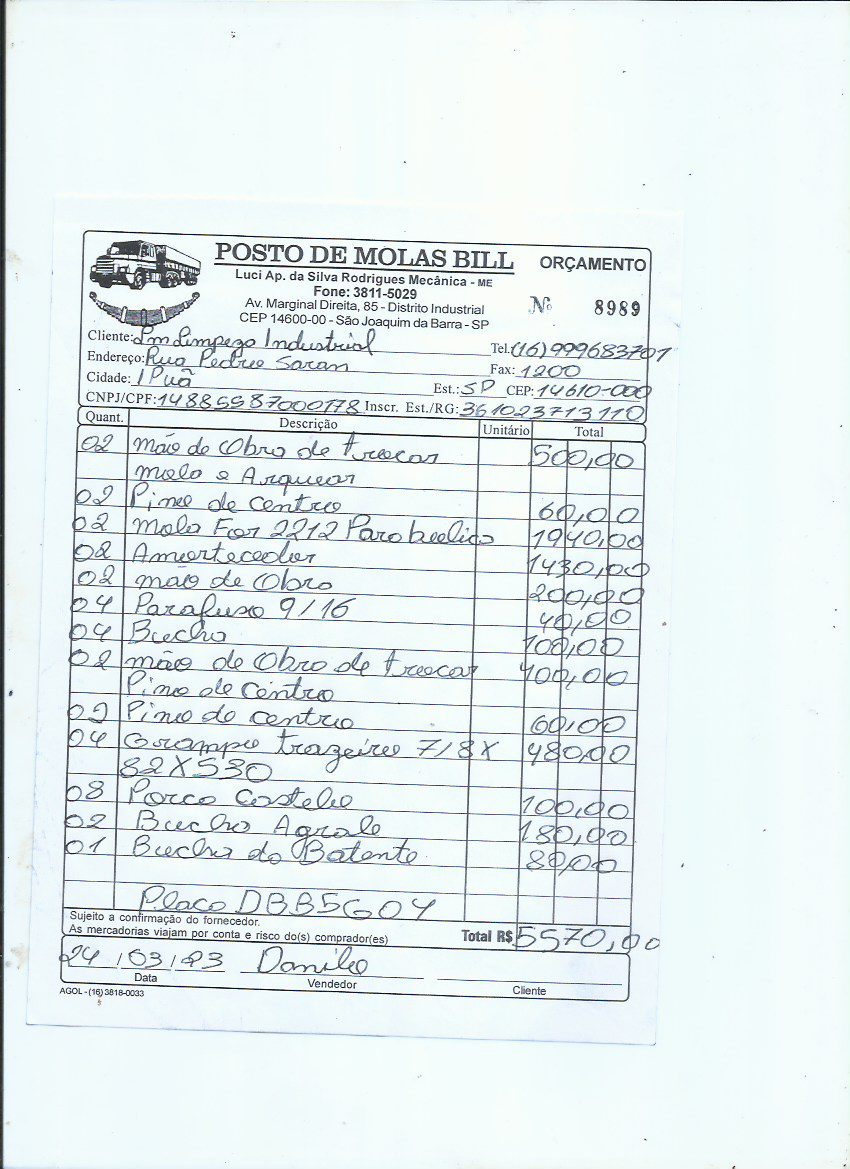 POSTO DE MOLAS BILL
ORÇAMENTO
Luci Ap. da Silva Rodrigues Mecânica - ME
Fone: 3811-5029
Av. Marginal Direita, 85 - Distrito Industrial
CEP 14600-00 - São Joaquim da Barra - SP
Nº 8989
Cliente: Lm Limpeza Industrial Tel. (16) 999683701
Endereço: Rua Pedro Saran Fax: 1200
Cidade: IPuã Est.: SP CEP: 14610-000
CNPJ/CPF: 14885587000178 Inscr. Est./RG: 361023713110
Quant. Descrição Unitário Total
02 mão de Obra de trocar 500,00
mola e Arquear
02 Pino de centro 60,00
02 Mola For 2212 Parabolica 1940,00
02 Amortecedor 1430,00
02 mão de Obra 200,00
04 Parafuso 9/16 40,00
04 Bucha 100,00
02 mão de Obra de trocar 400,00
Pino de centro
02 Pino de centro 60,00
04 Grampo trazeiro 7/8 X 480,00
82X530
08 Porca Castelo 100,00
02 Bucha Agrale 180,00
01 Bucha do Batente 80,00
Placa DBB5G04
Sujeito a confirmação do fornecedor.
As mercadorias viajam por conta e risco do(s) comprador(es)
Total R$ 5570,00
24 / 03 / 23 Danilo
Data Vendedor Cliente
AGOL - (16) 3818-0033